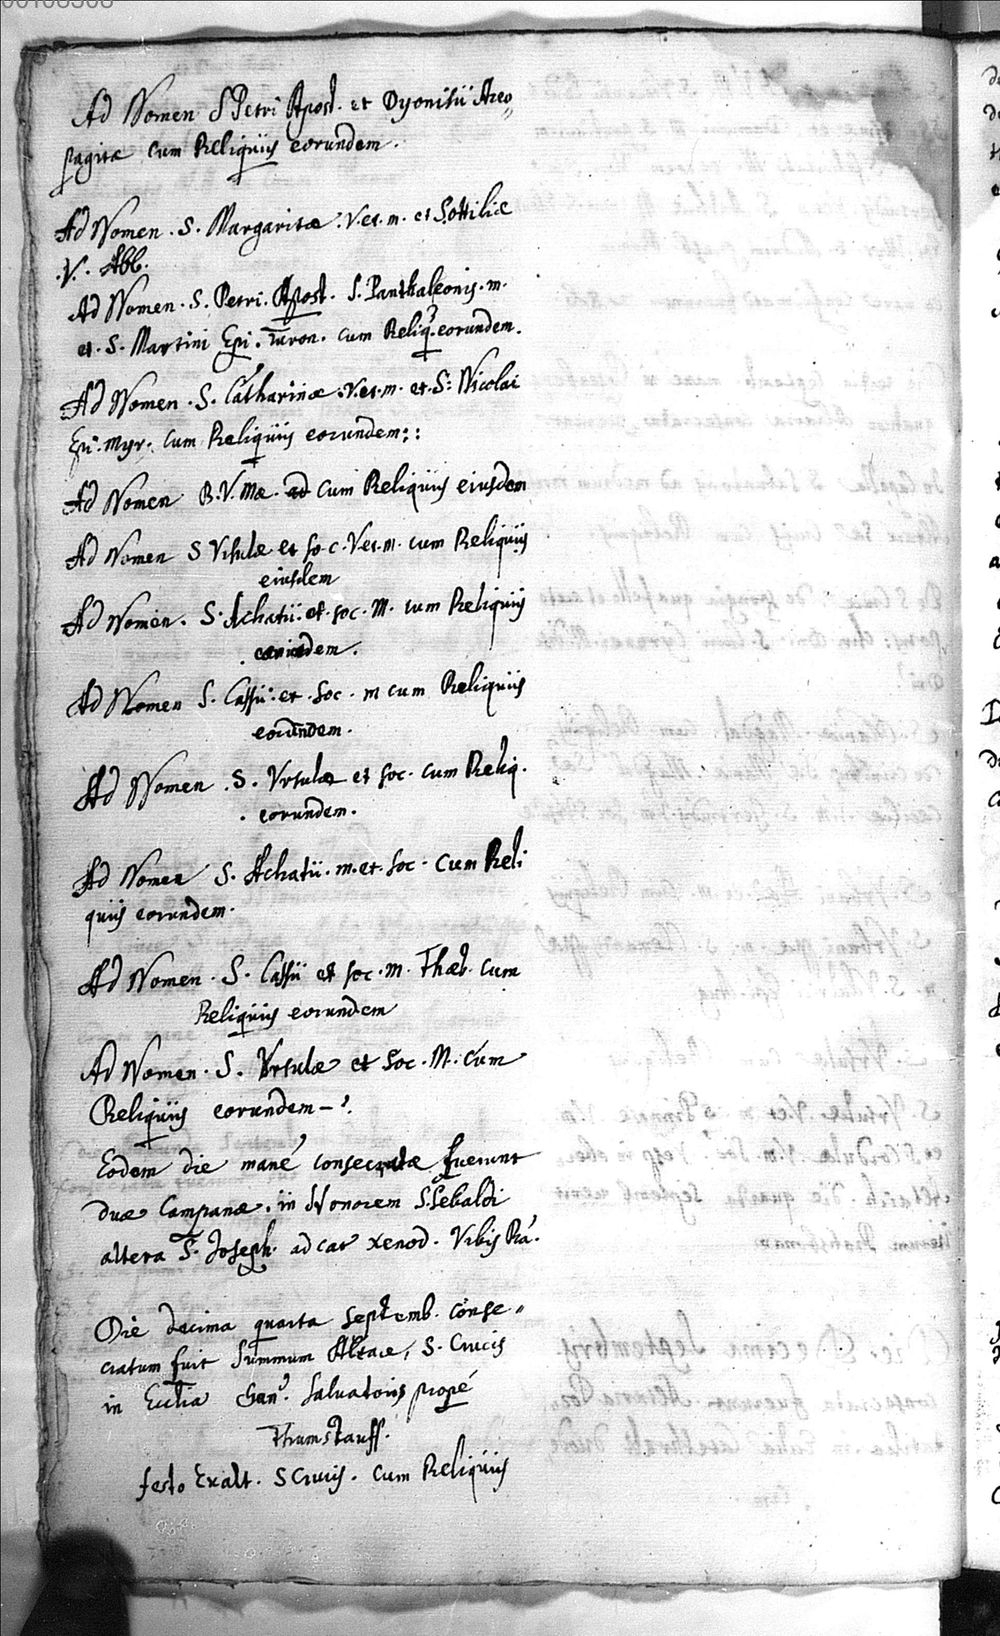 00108508
Ad Nomen S Petri Apost. et Dyonisii Areo„
pagitæ cum Reliquiis eorundem.
Ad Nomen. S. Margaritæ. V. et. m. et S. Ottiliæ
.V. Abb.
Ad Nomen. S. Petri. Apost. S. Panthaleonis. m.
et. S. Martini Epi. Turon. cum Reliq. eorundem.
Ad Nomen. S. Catharinæ. V. et. m. et. S. Nicolai
Epi. Myr. cum Reliquiis eorundem::
Ad Nomen B. V. Mæ. ad cum Reliquiis eiusdem
Ad Nomen S Ursulæ et soc. V. et. m. cum Reliquiis
eiusdem
Ad Nomen. S. Achatii. et. soc. M. cum Reliquiis
Ad Nomen S. Cassii. et. soc. m cum Reliquiis
eorundem.
Ad Nomen. S. Ursulæ et soc. cum Reliq.
. eorundem.
Ad Nomen S. Achatii. m. et. soc. cum Reli
quiis eorundem.
Ad Nomen. S. Cassii et soc. m. Thæb. cum
Reliquiis eorundem
Ad Nomen. S. Ursulæ et soc. M. cum
Reliquiis eorundem
Eodem die mane consecratæ fuerunt
duæ Campanæ. in Honorem S. Sebaldi
altera S. Joseph. ad xenod. Urbis Ra.
Die decima quarta Septemb. conse„
cratum fuit Summum Altare, S. Crucis
in Ecclia Salvatoris propé
Thumstauff.
festo Exalt. S Crucis. cum Reliquiis